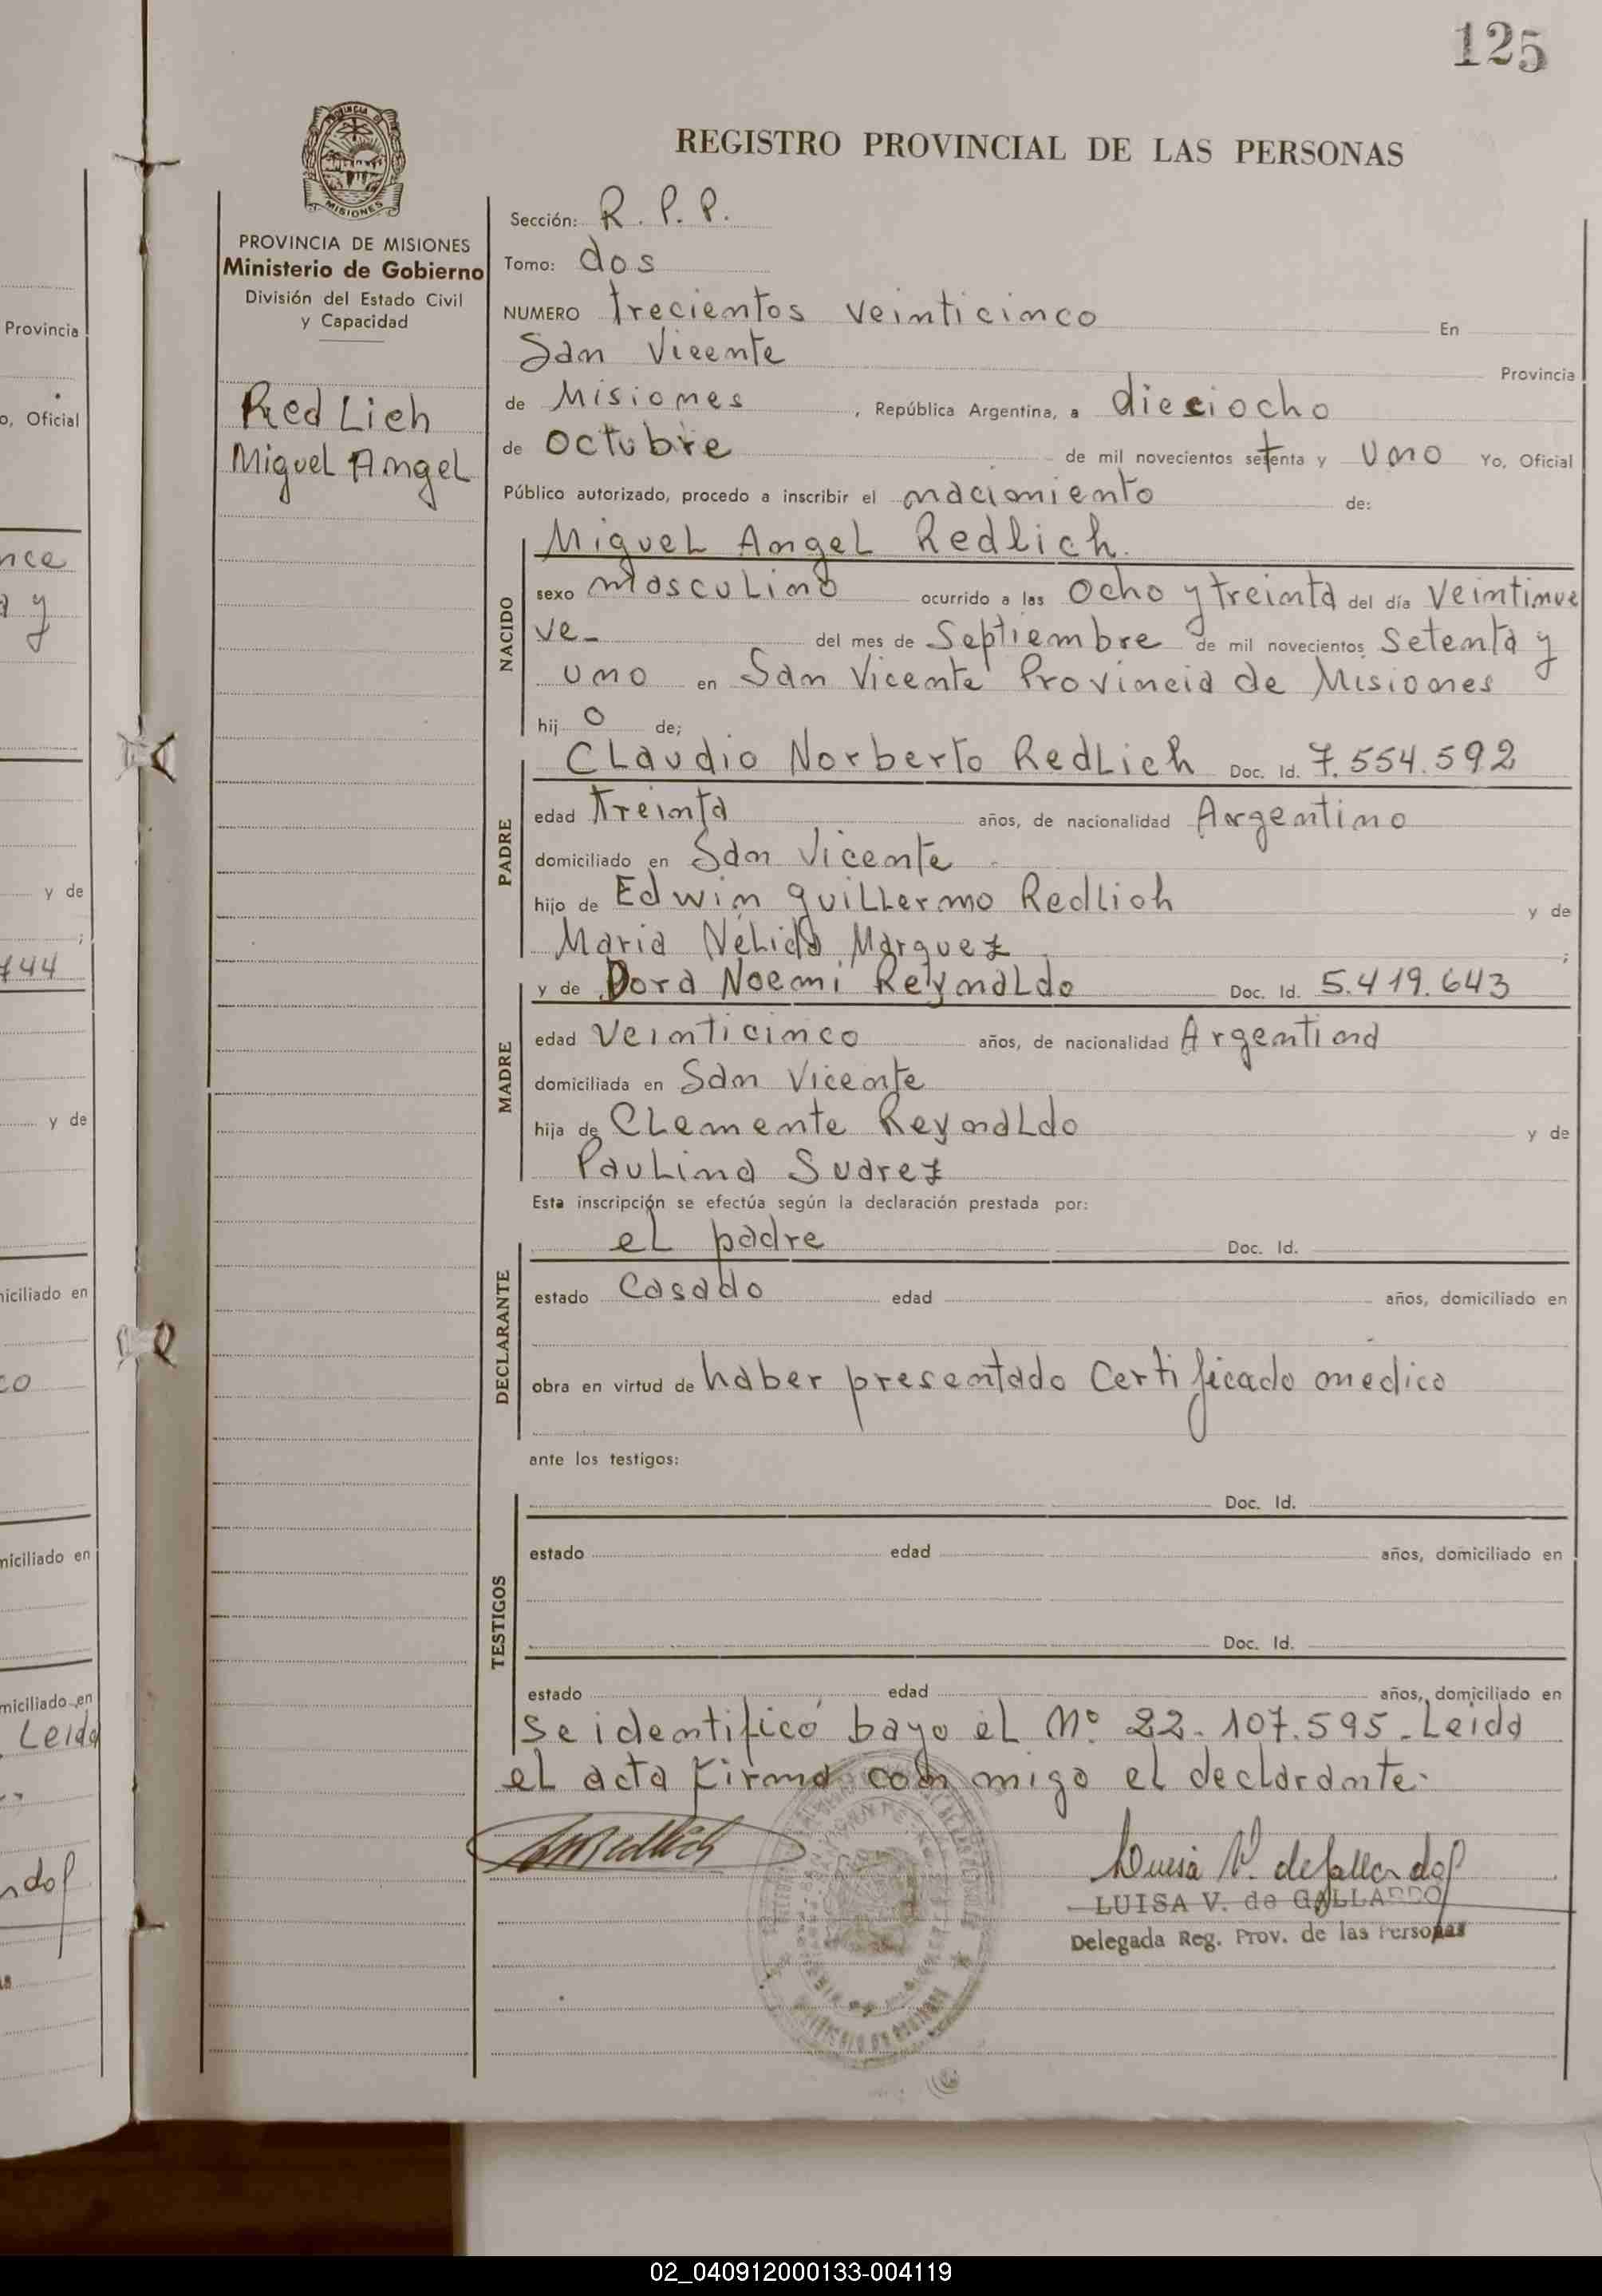 125
REGISTRO PROVINCIAL DE LAS PERSONAS
PROVINCIA DE MISIONES
Ministerio de Gobierno
División del Estado Civil
y Capacidad
Red Lich
Miguel Angel
Sección: R. P. P.
Tomo: dos
NUMERO trecientos veinticinco En
San Vicente Provincia
de Misiones, República Argentina, a dieciocho
de octubre de mil novecientos setenta y uno Yo, Oficial
Público autorizado, procedo a inscribir el nacimiento de:
NACIDO
Miguel Angel Redlich.
sexo masculino ocurrido a las ocho y treinta del día veintinue
ve- del mes de Septiembre de mil novecientos setenta y
uno en San Vicente Provincia de Misiones
hij o de;
PADRE
Claudio Norberto Redlich Doc. Id. 7.554.592
edad treinta años, de nacionalidad Argentino
domiciliado en San Vicente
hijo de Edwin guillermo Redlich y de
Maria Nélida Marquez ;
MADRE
y de Dora Noemi Reynaldo Doc. Id. 5.419.643
edad veinticinco años, de nacionalidad Argentina
domiciliada en San Vicente
hija de Clemente Reynaldo y de
Paulina Suarez
Esta inscripción se efectúa según la declaración prestada por:
DECLARANTE
el padre Doc. Id.
estado Casado edad años, domiciliado en
obra en virtud de haber presentado Certificado medico
ante los testigos:
TESTIGOS
Doc. Id.
estado edad años, domiciliado en
Doc. Id.
estado edad años, domiciliado en
se identificó bayo el Nº 22.107.595. Leida
el acta firma con migo el declarante.
Redlich
Luisa V. de Gallardo
LUISA V. de GALLARDO
Delegada Reg. Prov. de las Personas
Provincia
o, Oficial
nce
a y
y de
;
744
y de
niciliado en
co
niciliado en
miciliado en
Leida
02_040912000133-004119